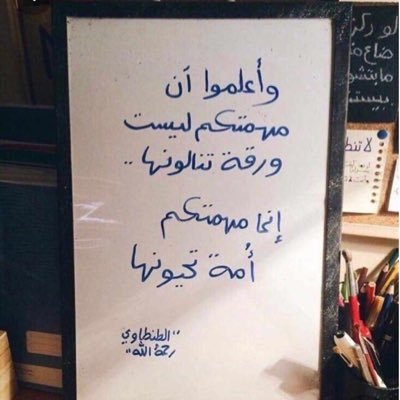 وأعلموا أن
مهمتكم ليست
ورقة تنالونها ..
إنما مهمتكم
أمة تحيونها
"الطنطاوي
رحمه الله"
لو ركز
ضاع
لا تنظ